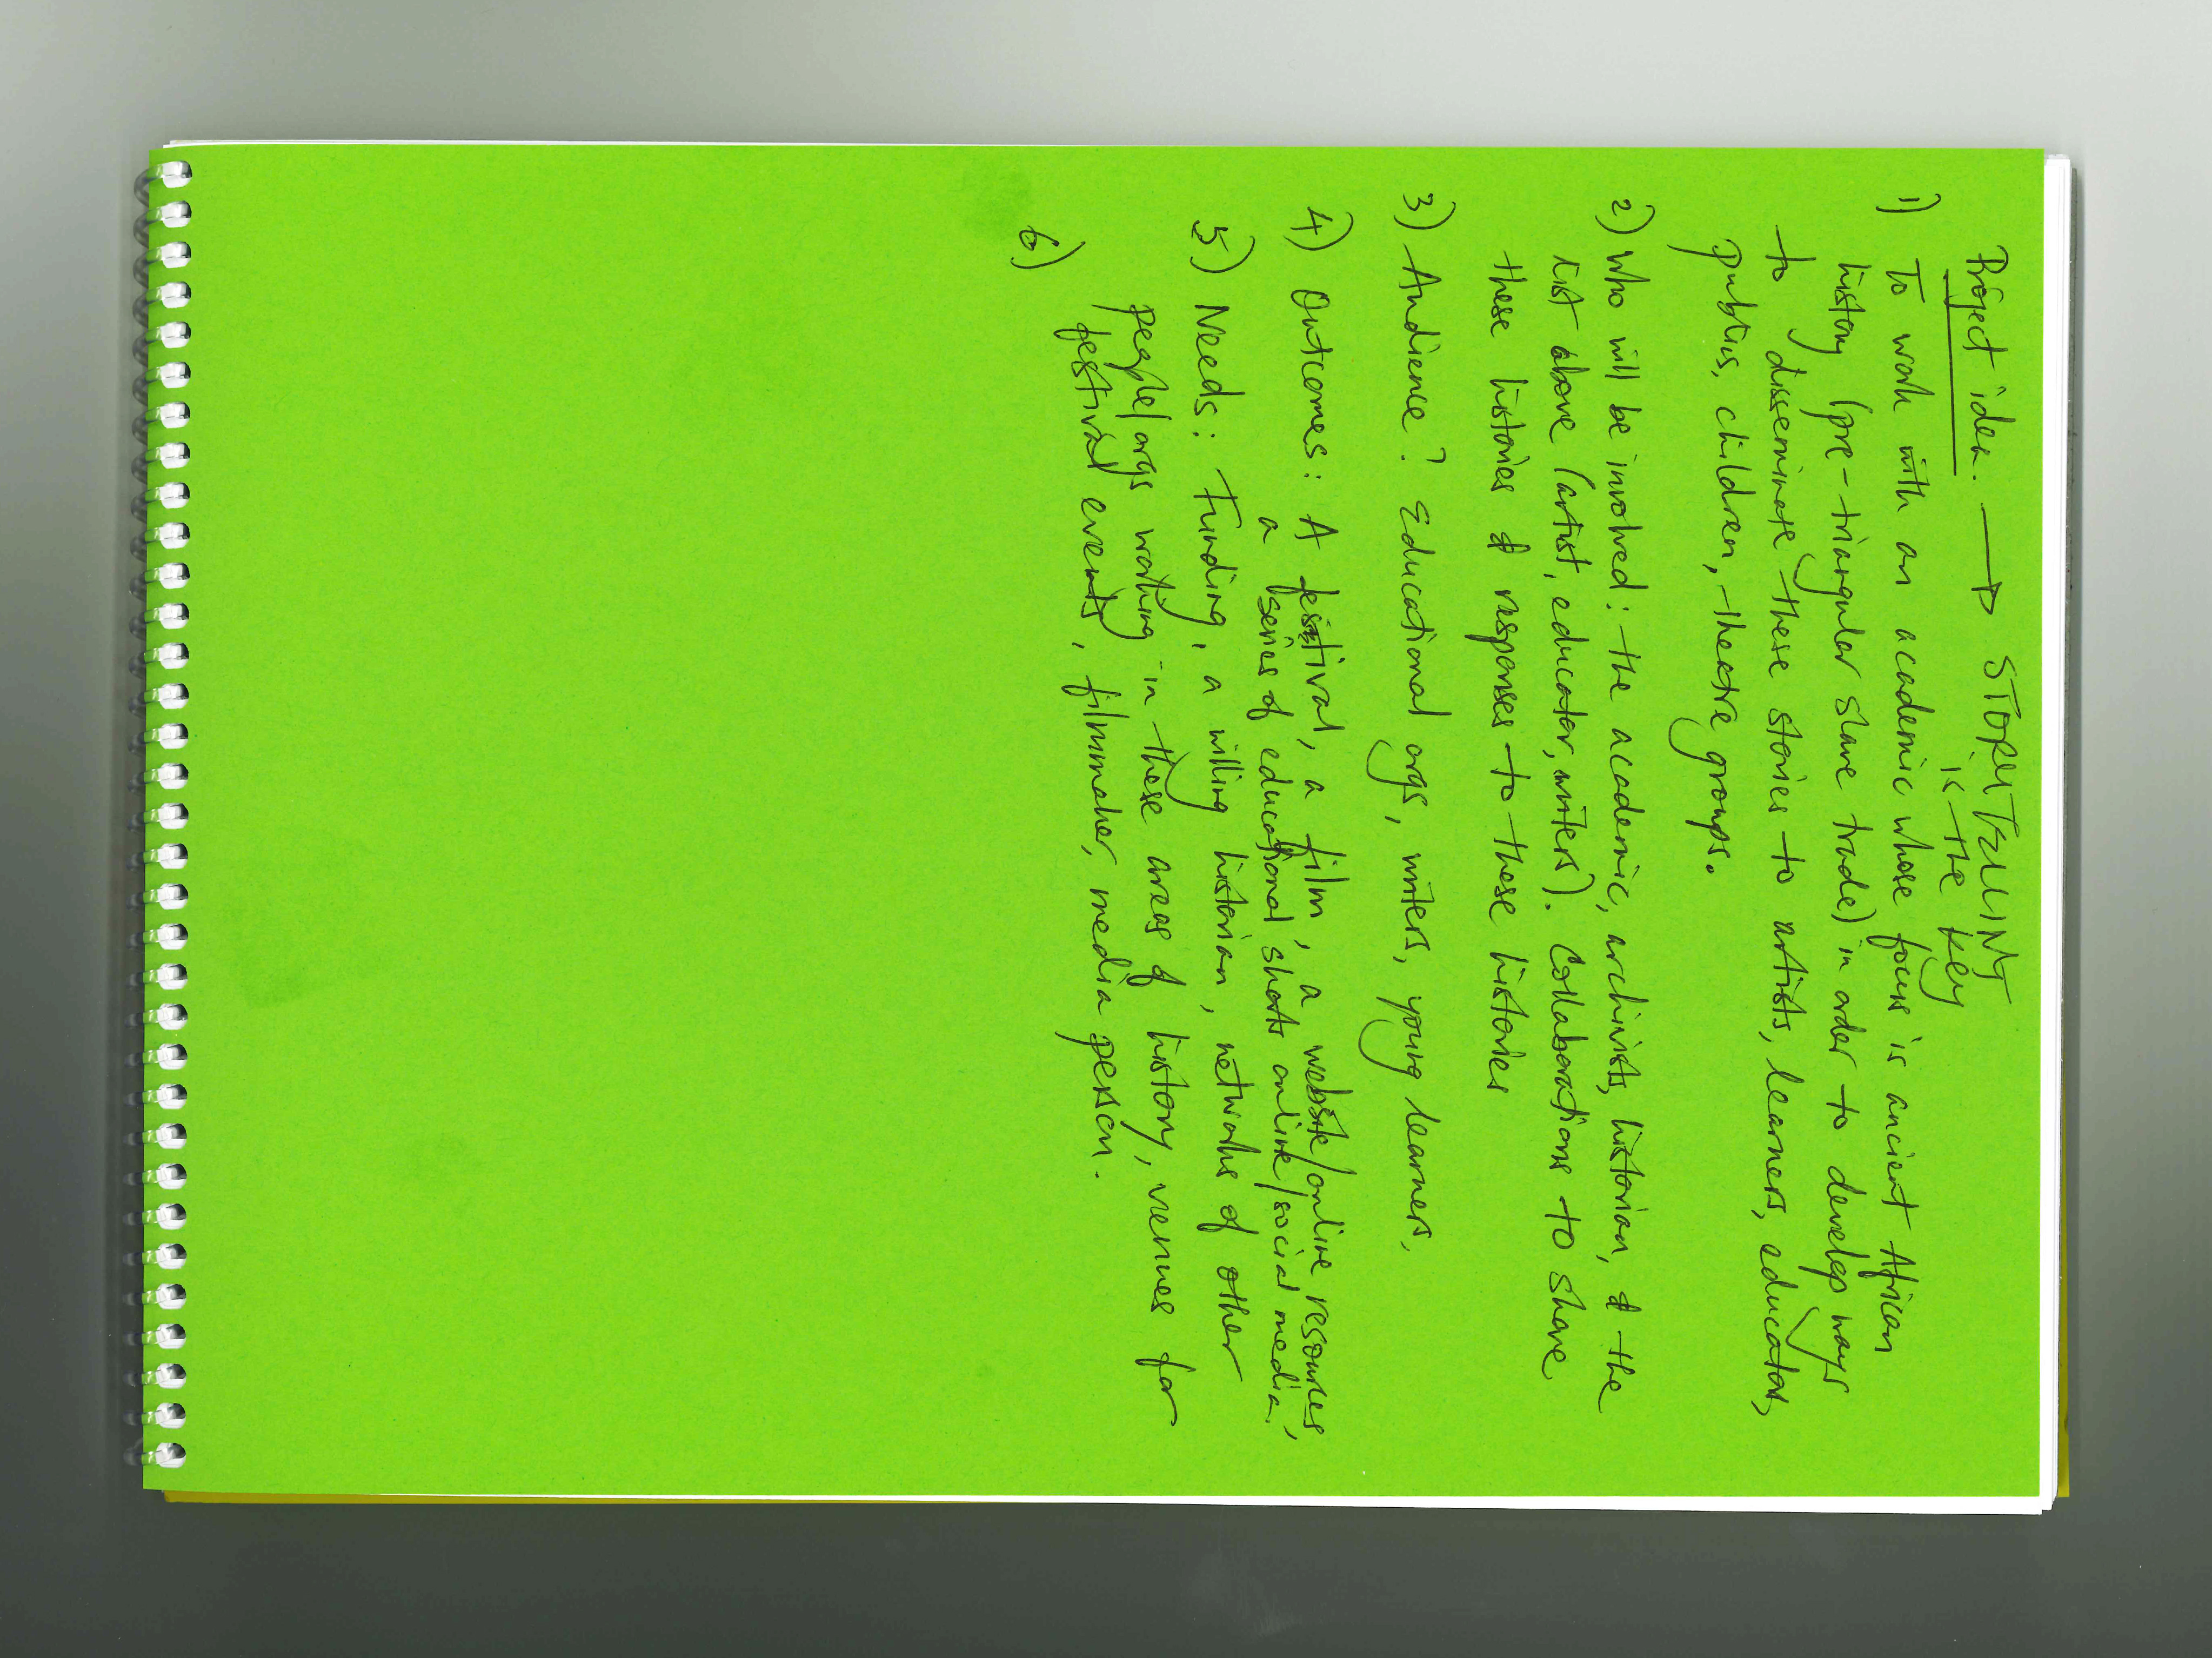 Project idea. → STORYTELLING
is the key
1) To work with an academic whose focus is ancient African
history (pre-triangular slave trade) in order to develop ways
to disseminate these stories to artists, learners, educators,
publics, children, theatre groups.
2) Who will be involved: the academic, archivists, historian, & the
list above (artist, educator, writers). Collaborations to share
these histories & responses to these histories
3) Audience? Educational orgs, writers, young learners,
4) Outcomes: A festival, a film, a website/online resources,
a series of educational shorts online/social media.
5) Needs: Funding, a willing historian, networks of other
people/orgs working in these areas of history, venues for
festival events, filmmaker, media person.
6)